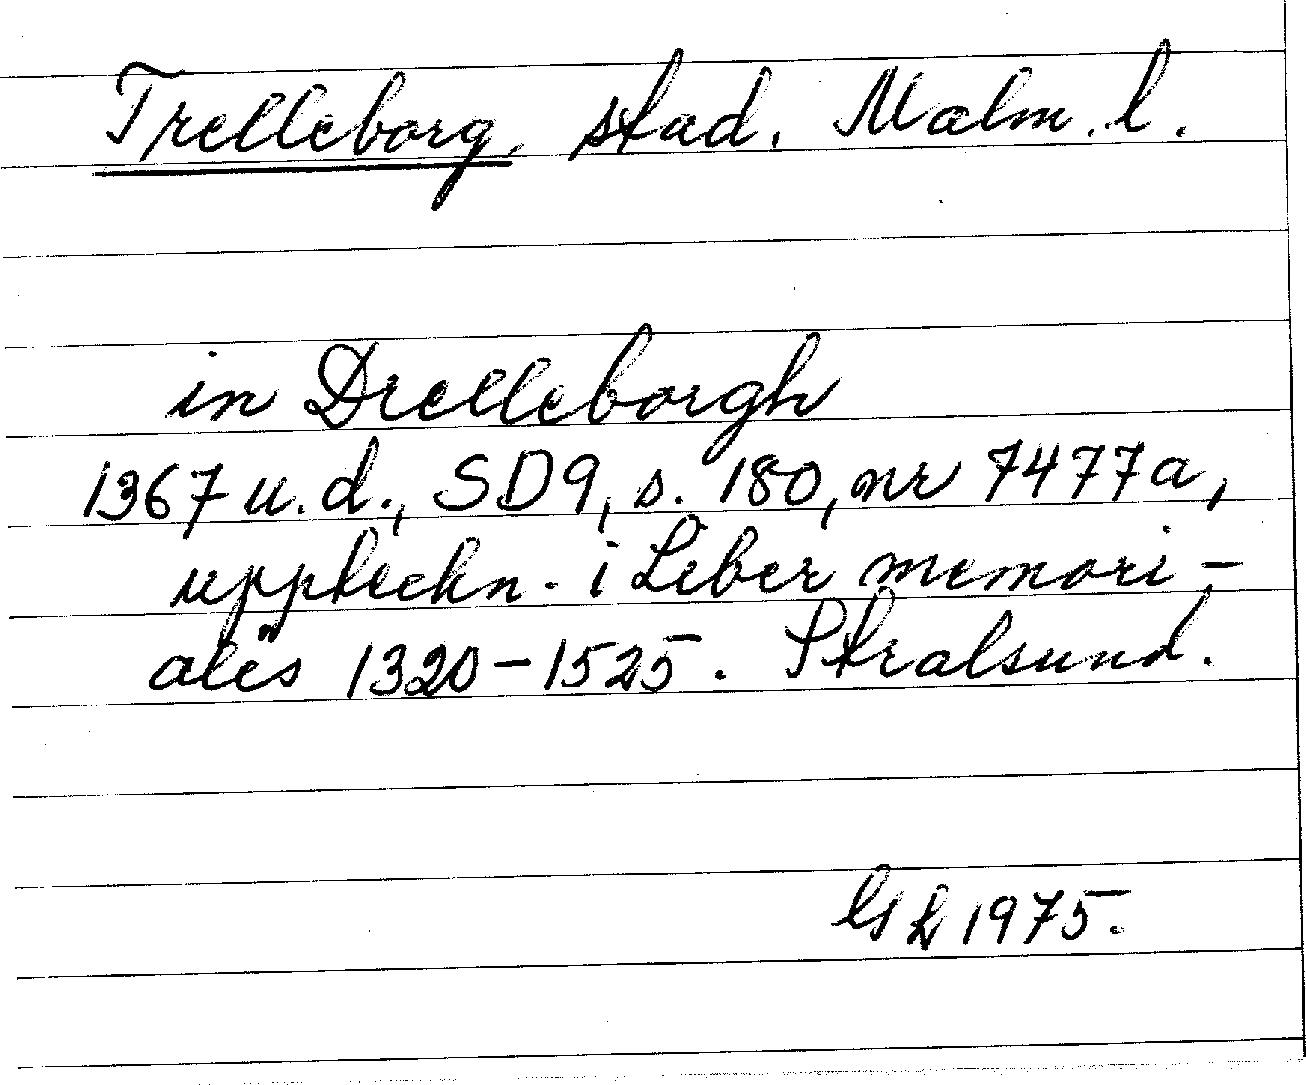 Trelleborg, stad. Malm. l.
in Drelleborgh
1367 u.d., SD9, s. 180, nr 7477a,
uppteckn. i Liber memori-
alis 1320-1525. Stralsund.
1975.